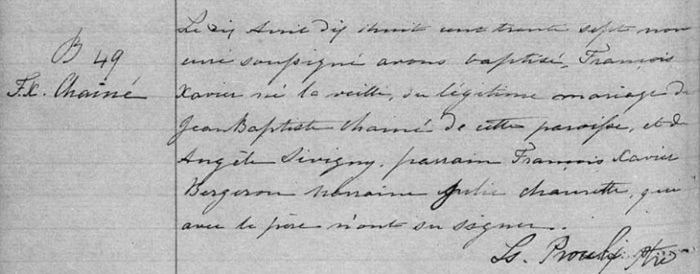 B 49
F.X. Chaîné
Le dix Avril dix huit cent trente sept nous
curé soussigné avons baptisé François
Xavier né la veille, du légitime mariage de
Jean Baptiste chainé de cette paroisse, et d'
Angèle Sévigny, parrain François Xavier
Bergeron marraine Julie chaurette, qui
avec le père n'ont su signer..
Ls. Proulx Ptre